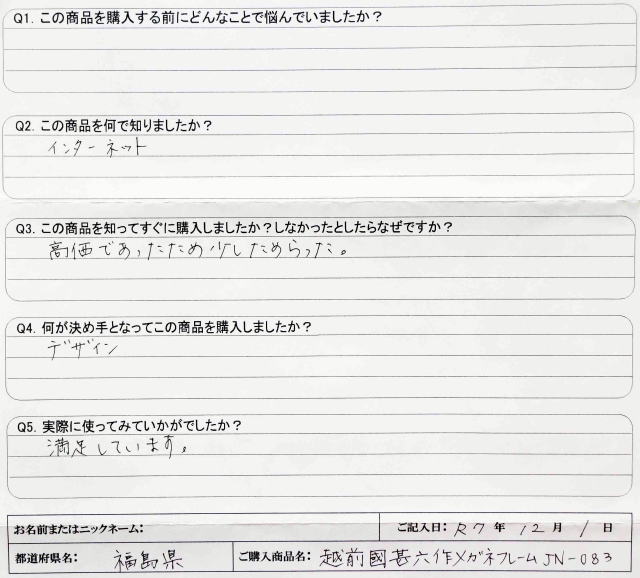 Q1. この商品を購入する前にどんなことで悩んでいましたか？
Q2. この商品を何で知りましたか？
インターネット
Q3. この商品を知ってすぐに購入しましたか？しなかったとしたらなぜですか？
高価であったため少しためらった。
Q4. 何が決め手となってこの商品を購入しましたか？
デザイン
Q5. 実際に使ってみていかがでしたか？
満足しています。
お名前またはニックネーム： ご記入日： R7 年 12 月 1 日
都道府県名： 福島県 ご購入商品名： 越前國甚六作メガネフレーム JN-083